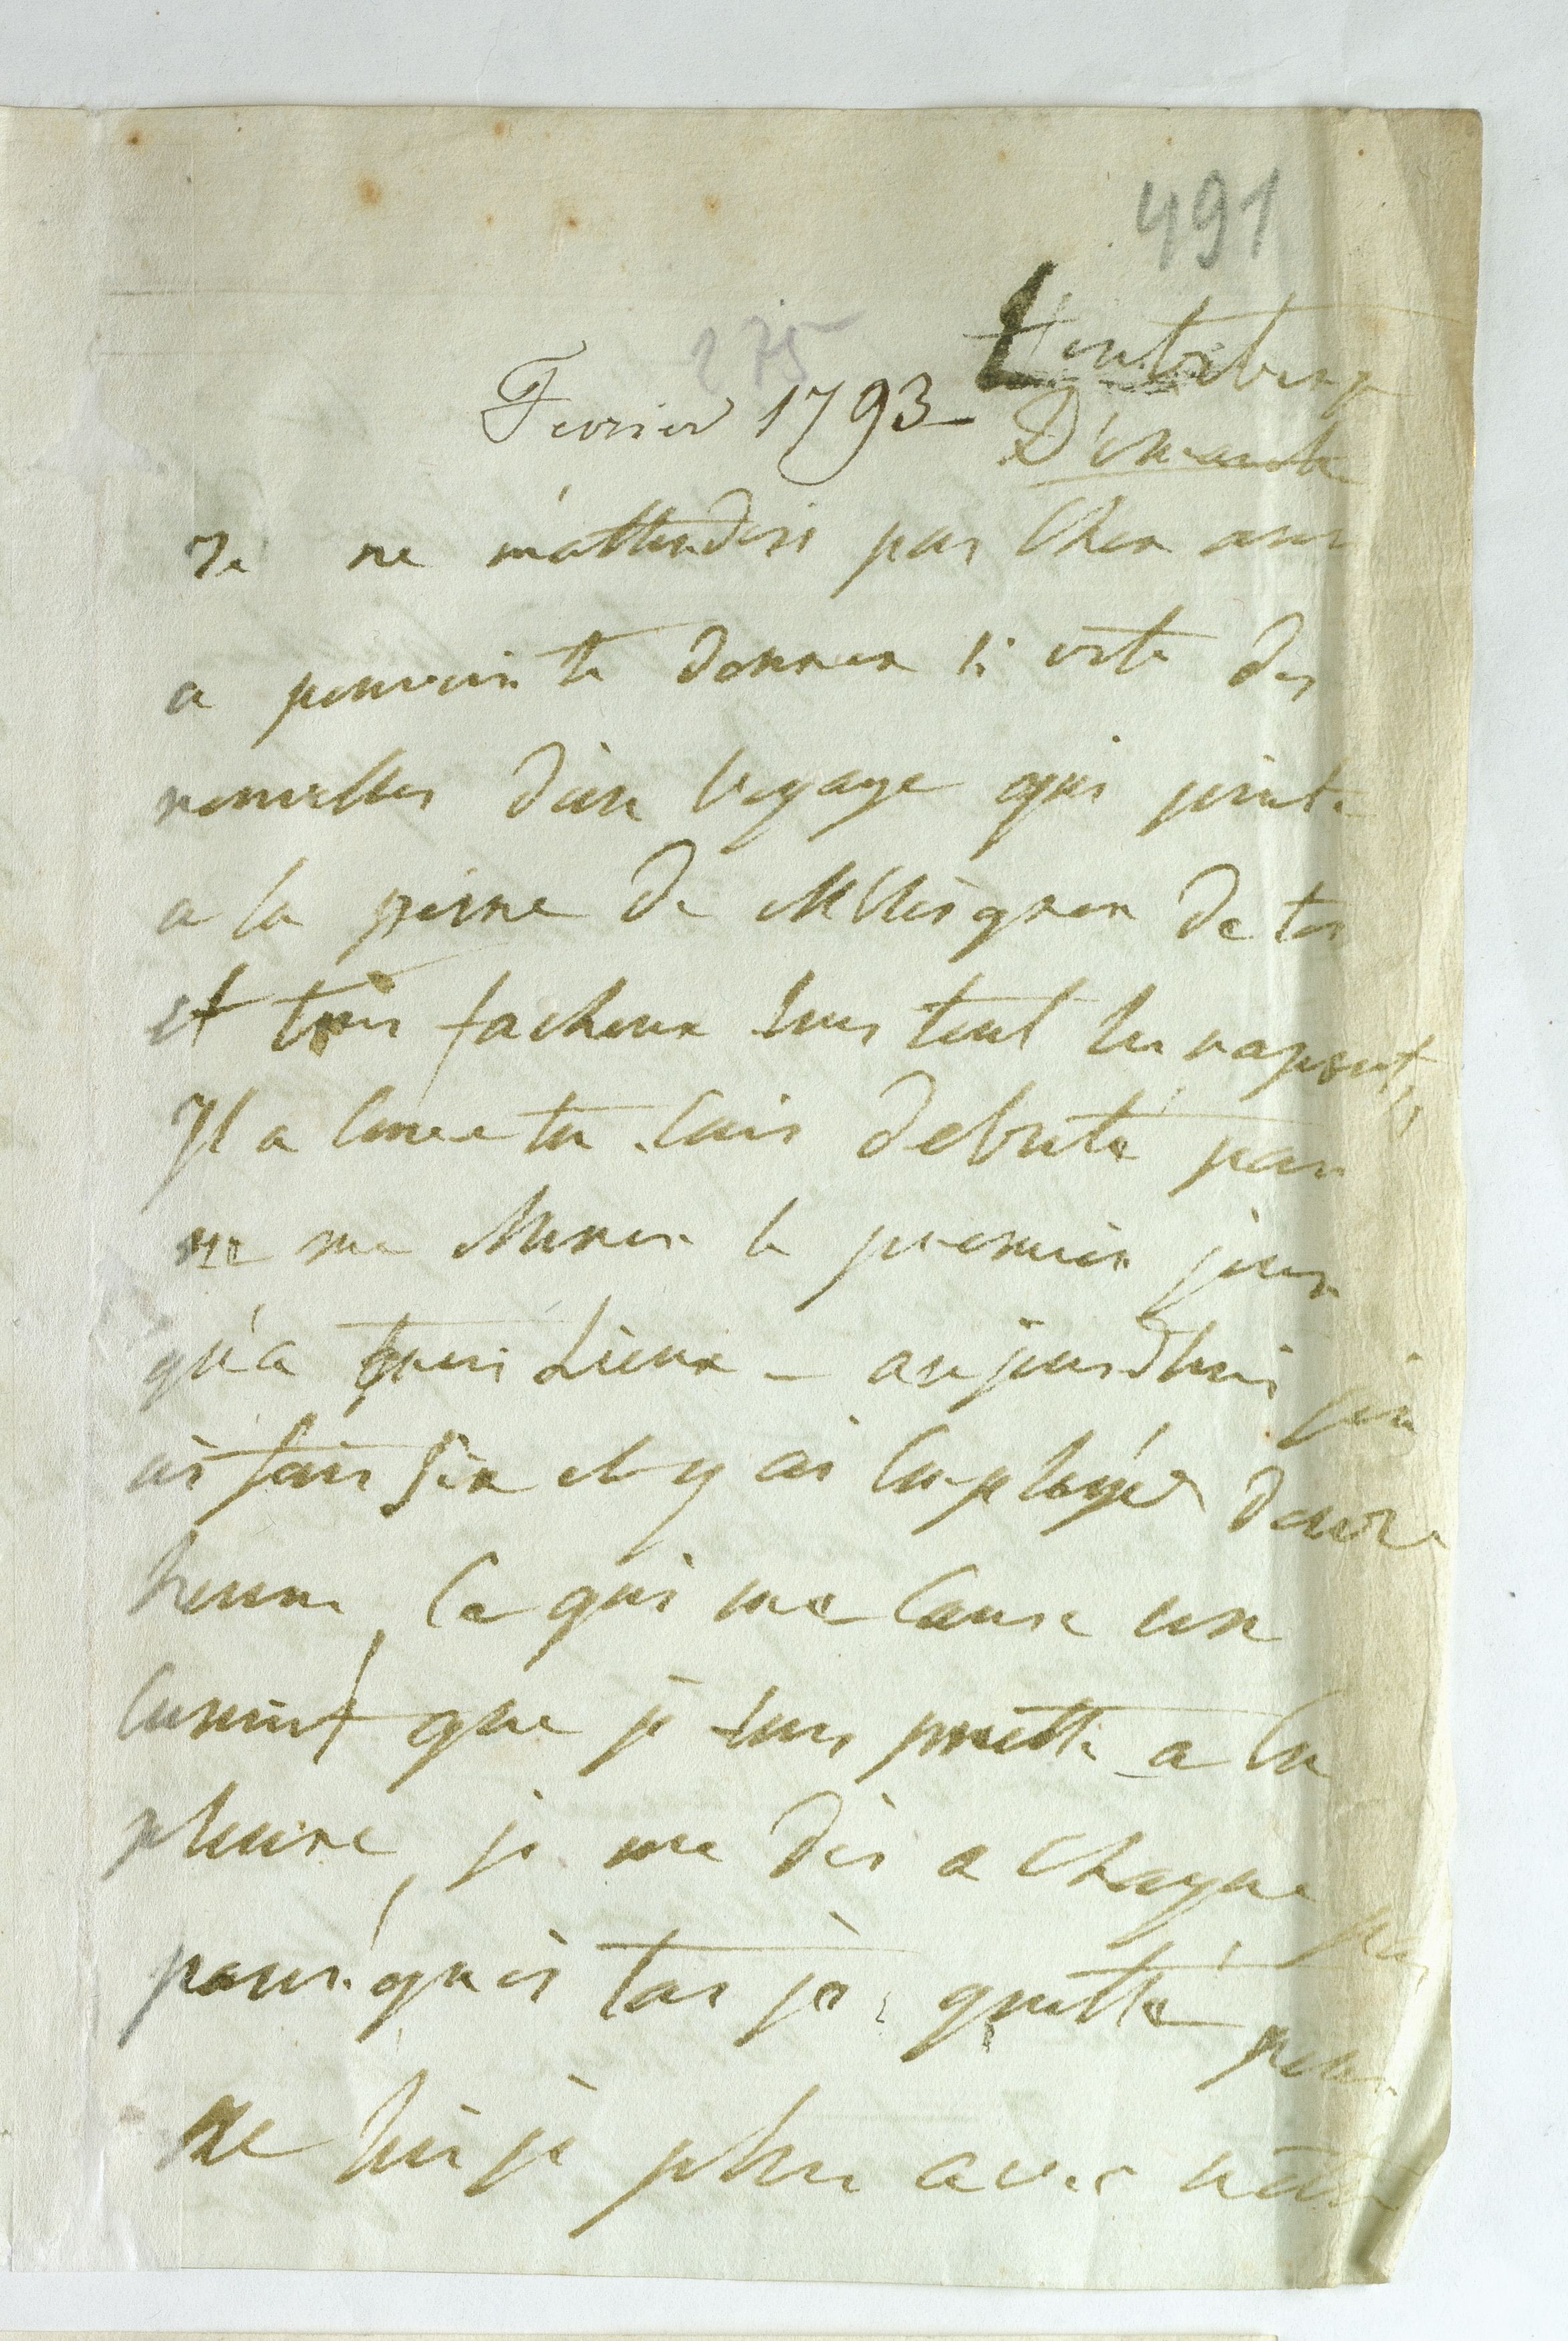 491
275
Fevrier 1793
Dimanche
Je ne m'attendois pas cher ami
a pouvoir te donner si vite des
nouvelles d'un voyage qui joint
a la peine de m'éloigner de toi
est tres facheux sous tout les raports
Il a comme tu sais debuté par
ne me mener le premier jour
qu'a trois Lieux - aujourdhui j'en
ai fais six et y ai employé douze
heures, ce qui me cause un
ennui que je suis prette a en
pleurer, je me dis a chaque pas
pourquoi t'ai je quitté pour
ne suis je plus avec